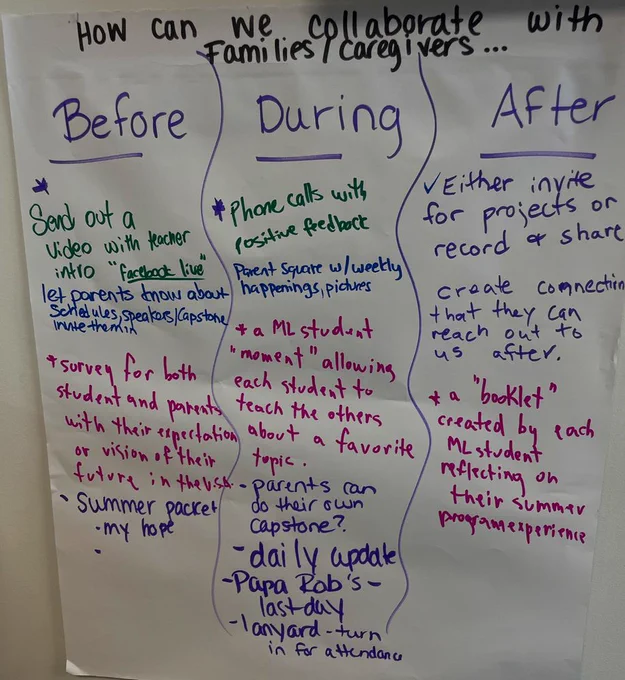 How can we collaborate with
Families/Caregivers...
Before
*
Send out a
video with teacher
intro "facebook live"
let parents know about
Schedules, speakers/Capstone
invite them in
*survey for both
student and parents
with their expectation
or vision of their
future in the USA.
Summer packet
• my hope
•
During
* Phone calls with
positive feedback
Parent Square w/weekly
happenings, pictures
* a ML student
"moment" allowing
each student to
teach the others
about a favorite
topic.
- parents can
do their own
capstone?.
- daily update
- Papa Rob's -
last day
- lanyard - turn
in for attendance
After
✓Either invite
for projects or
record & share
create connection
that they can
reach out to
us after.
* a "booklet"
created by each
ML student
reflecting on
their summer
program experience